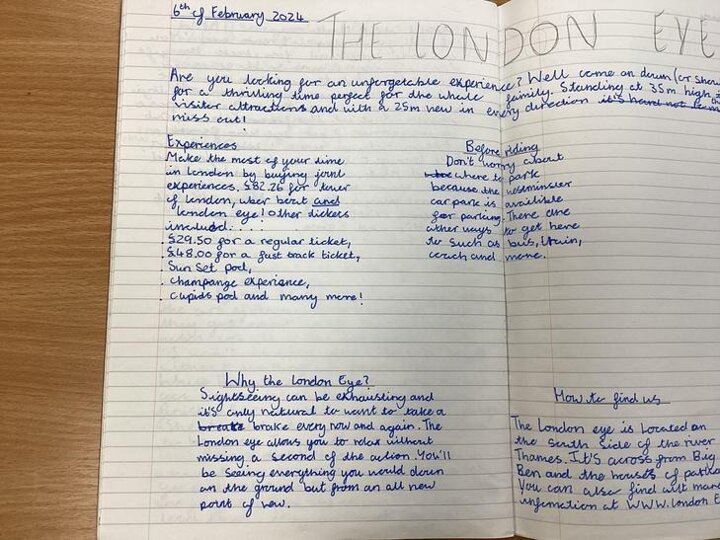 6th of February 2024
THE LONDON EYE
Are you looking for an unforgetable experience? Well come on down (or
for a thrilling time perfect for the whole family. Standing at 35m high,
visitor attractions and with a 25m view in every direction it's hard not
miss out!
Experiences
Make the most of your time
in London by buying joint
experiences, £82.26 for tower
of london, uber boat and
london eye! Other tickets
included.....
£29.50 for a regular ticket,
£48.00 for a fast track ticket,
Sun Set pod,
Champange experience,
cupids pod and many more!
Before riding
Don't worry about
where to park
because the westminster
car park is availible
for parking. There are
other ways to get here
to such as bus, train,
coach and more.
Why the london Eye?
Sightseeing can be exhausting and
it's only natural to want to take a
breake brake every now and again. The
London eye allows you to relax without
missing a second of the action. You'll
be seeing everything you would down
on the ground but from an all new
point of vew.
How to find us
The London eye is located on
the south side of the river
Thames. It's across from Big
Ben and the houses of
You can also find
infomation at WWW.london